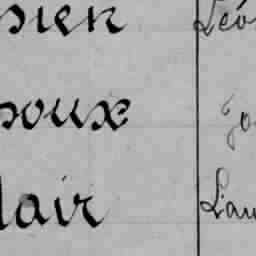 sien Léo
poux Jo
lair Lau